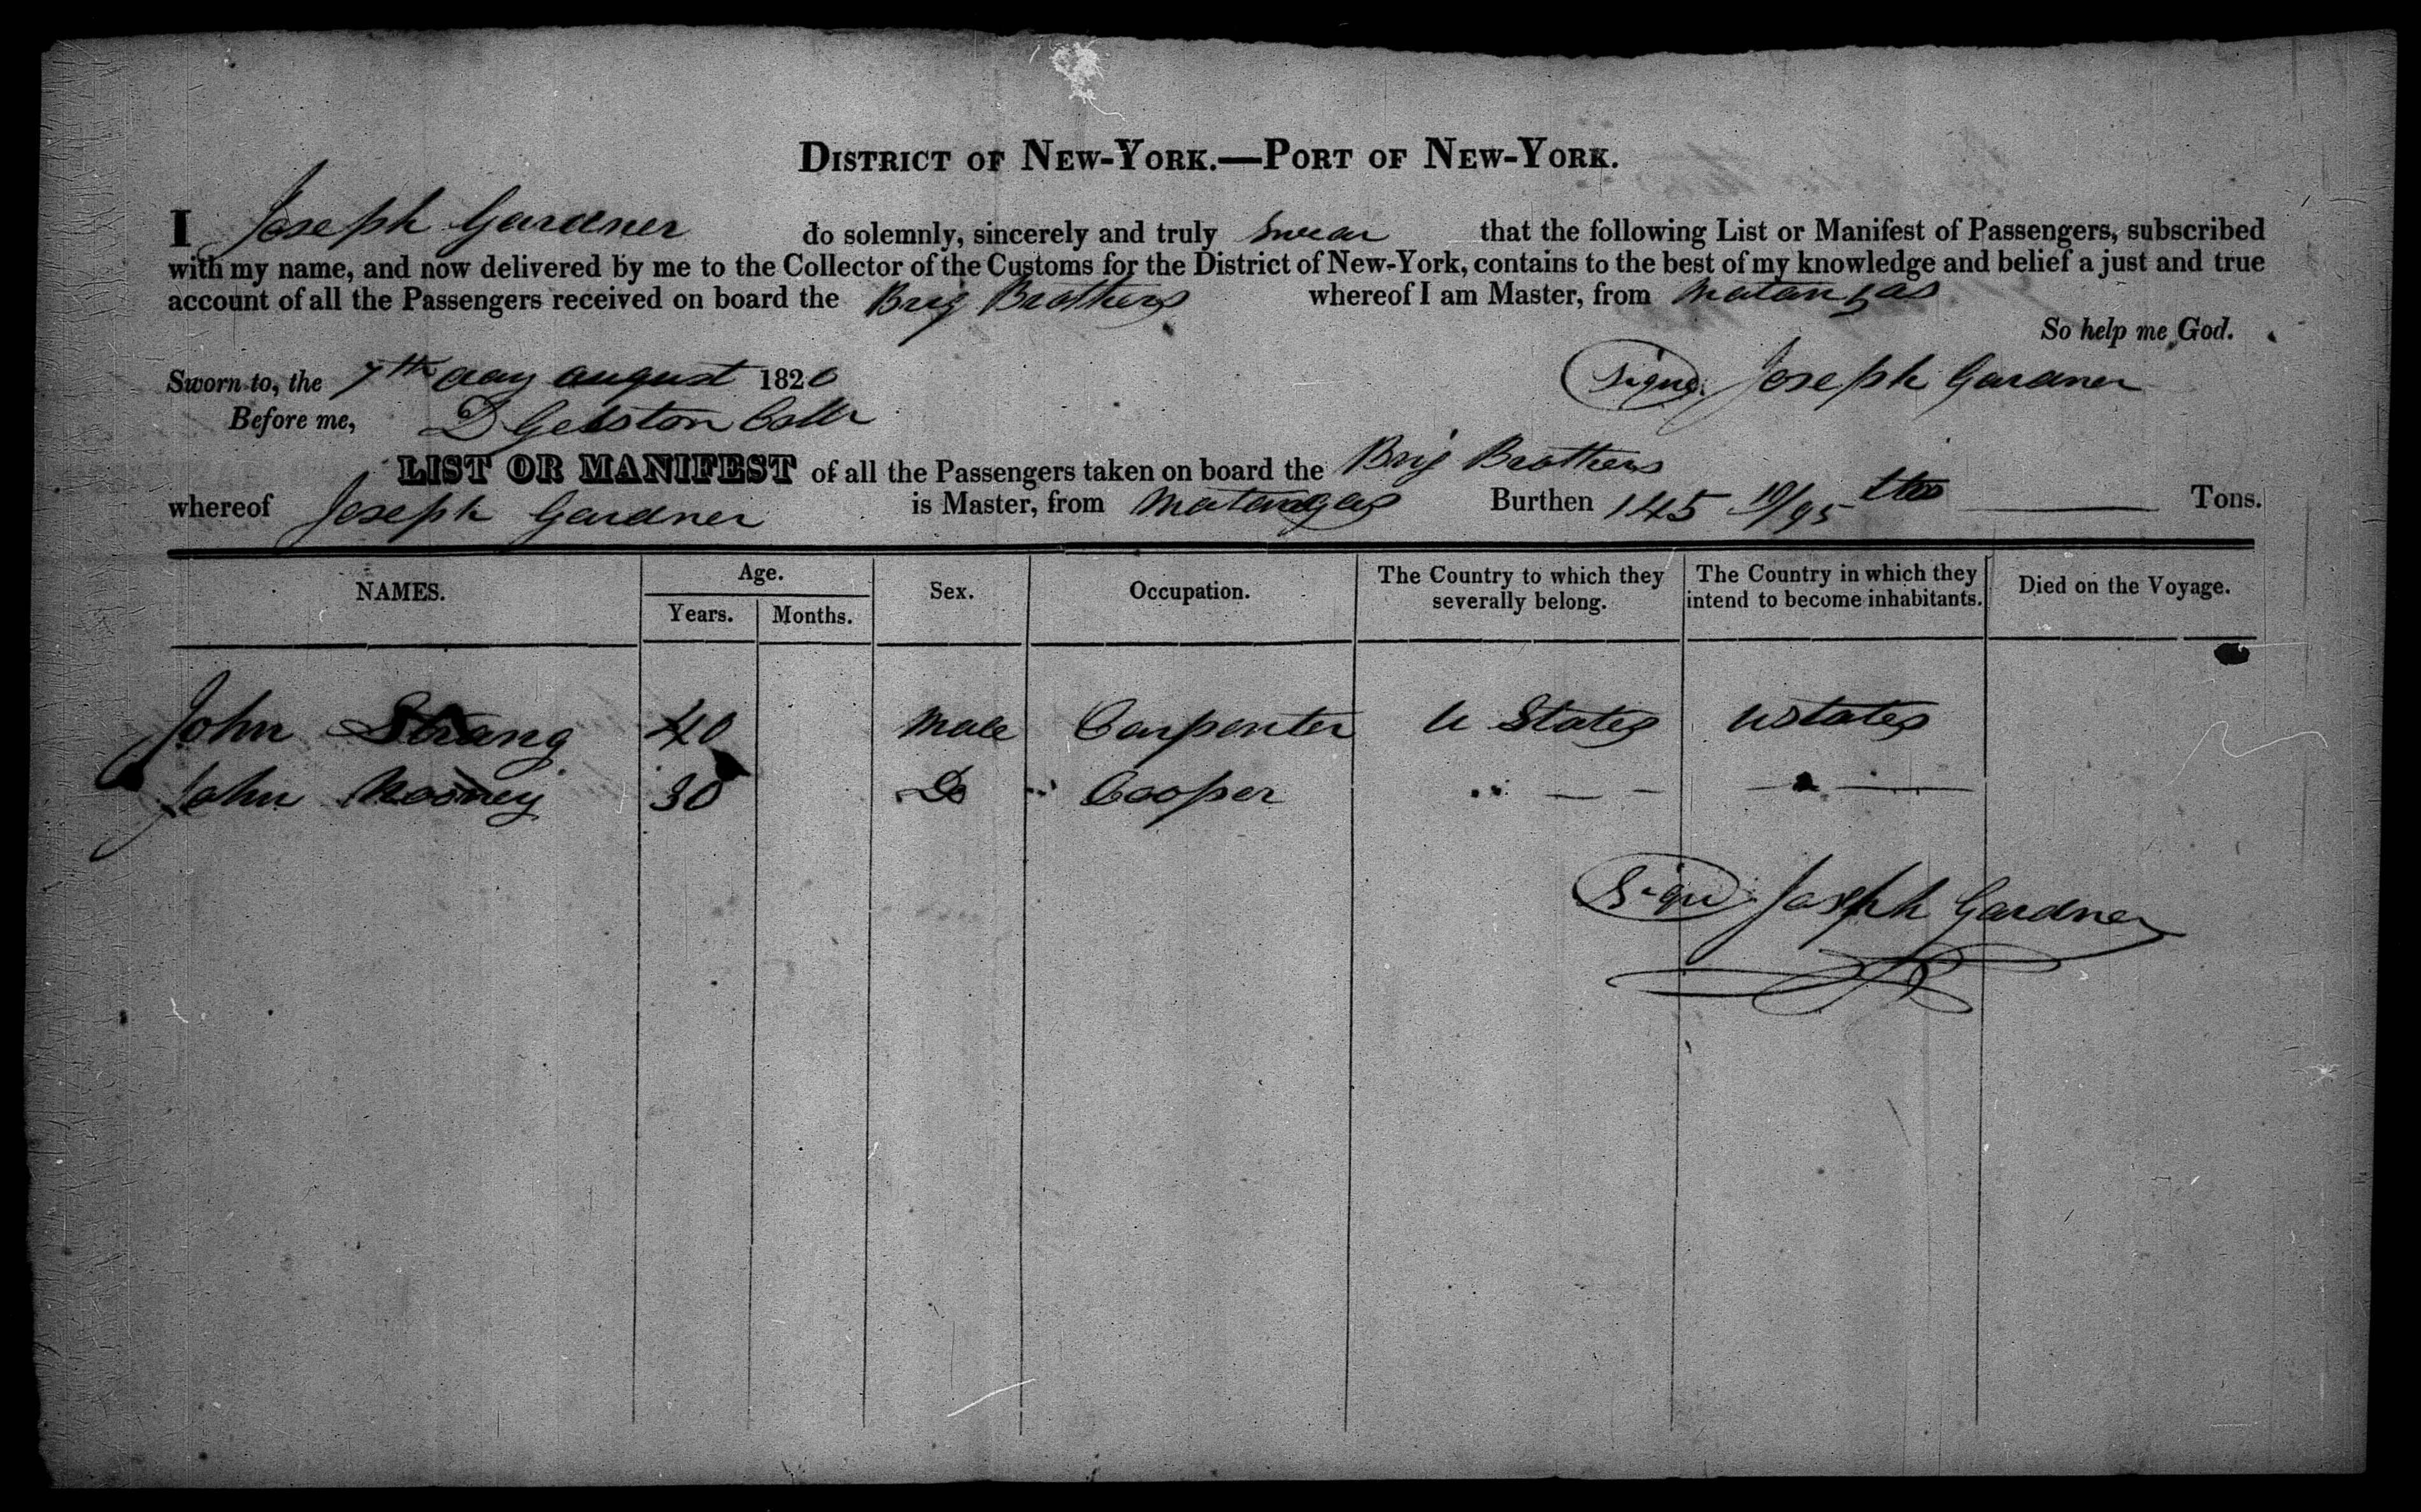 DISTRICT OF NEW-YORK.—PORT OF NEW-YORK.
I Joseph Gardner do solemnly, sincerely and truly swear that the following List or Manifest of Passengers, subscribed
with my name, and now delivered by me to the Collector of the Customs for the District of New-York, contains to the best of my knowledge and belief a just and true
account of all the Passengers received on board the Brig Brothers whereof I am Master, from Matanzas
So help me God.
Sworn to, the 7th day august 1820 (Signd) Joseph Gardner
Before me, D Gelston Collr
LIST OR MANIFEST of all the Passengers taken on board the Brig Brothers
whereof Joseph Gardner is Master, from Matanzas Burthen 145 10/95 ths Tons.
NAMES. Age. Years. Months. Sex. Occupation. The Country to which they severally belong. The Country in which they intend to become inhabitants. Died on the Voyage.
John Strang 40 Male Carpenter U States UStates
John 30 Do Cooper " — — — " —
(Signd) Joseph Gardner